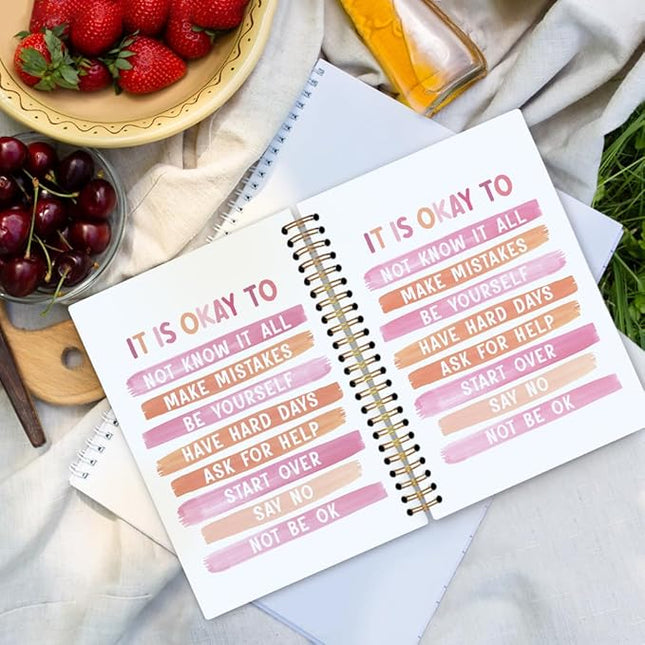 IT IS OKAY TO
NOT KNOW IT ALL
MAKE MISTAKES
BE YOURSELF
HAVE HARD DAYS
ASK FOR HELP
START OVER
SAY NO
NOT BE OK
IT IS OKAY TO
NOT KNOW IT ALL
MAKE MISTAKES
BE YOURSELF
HAVE HARD DAYS
ASK FOR HELP
START OVER
SAY NO
NOT BE OK